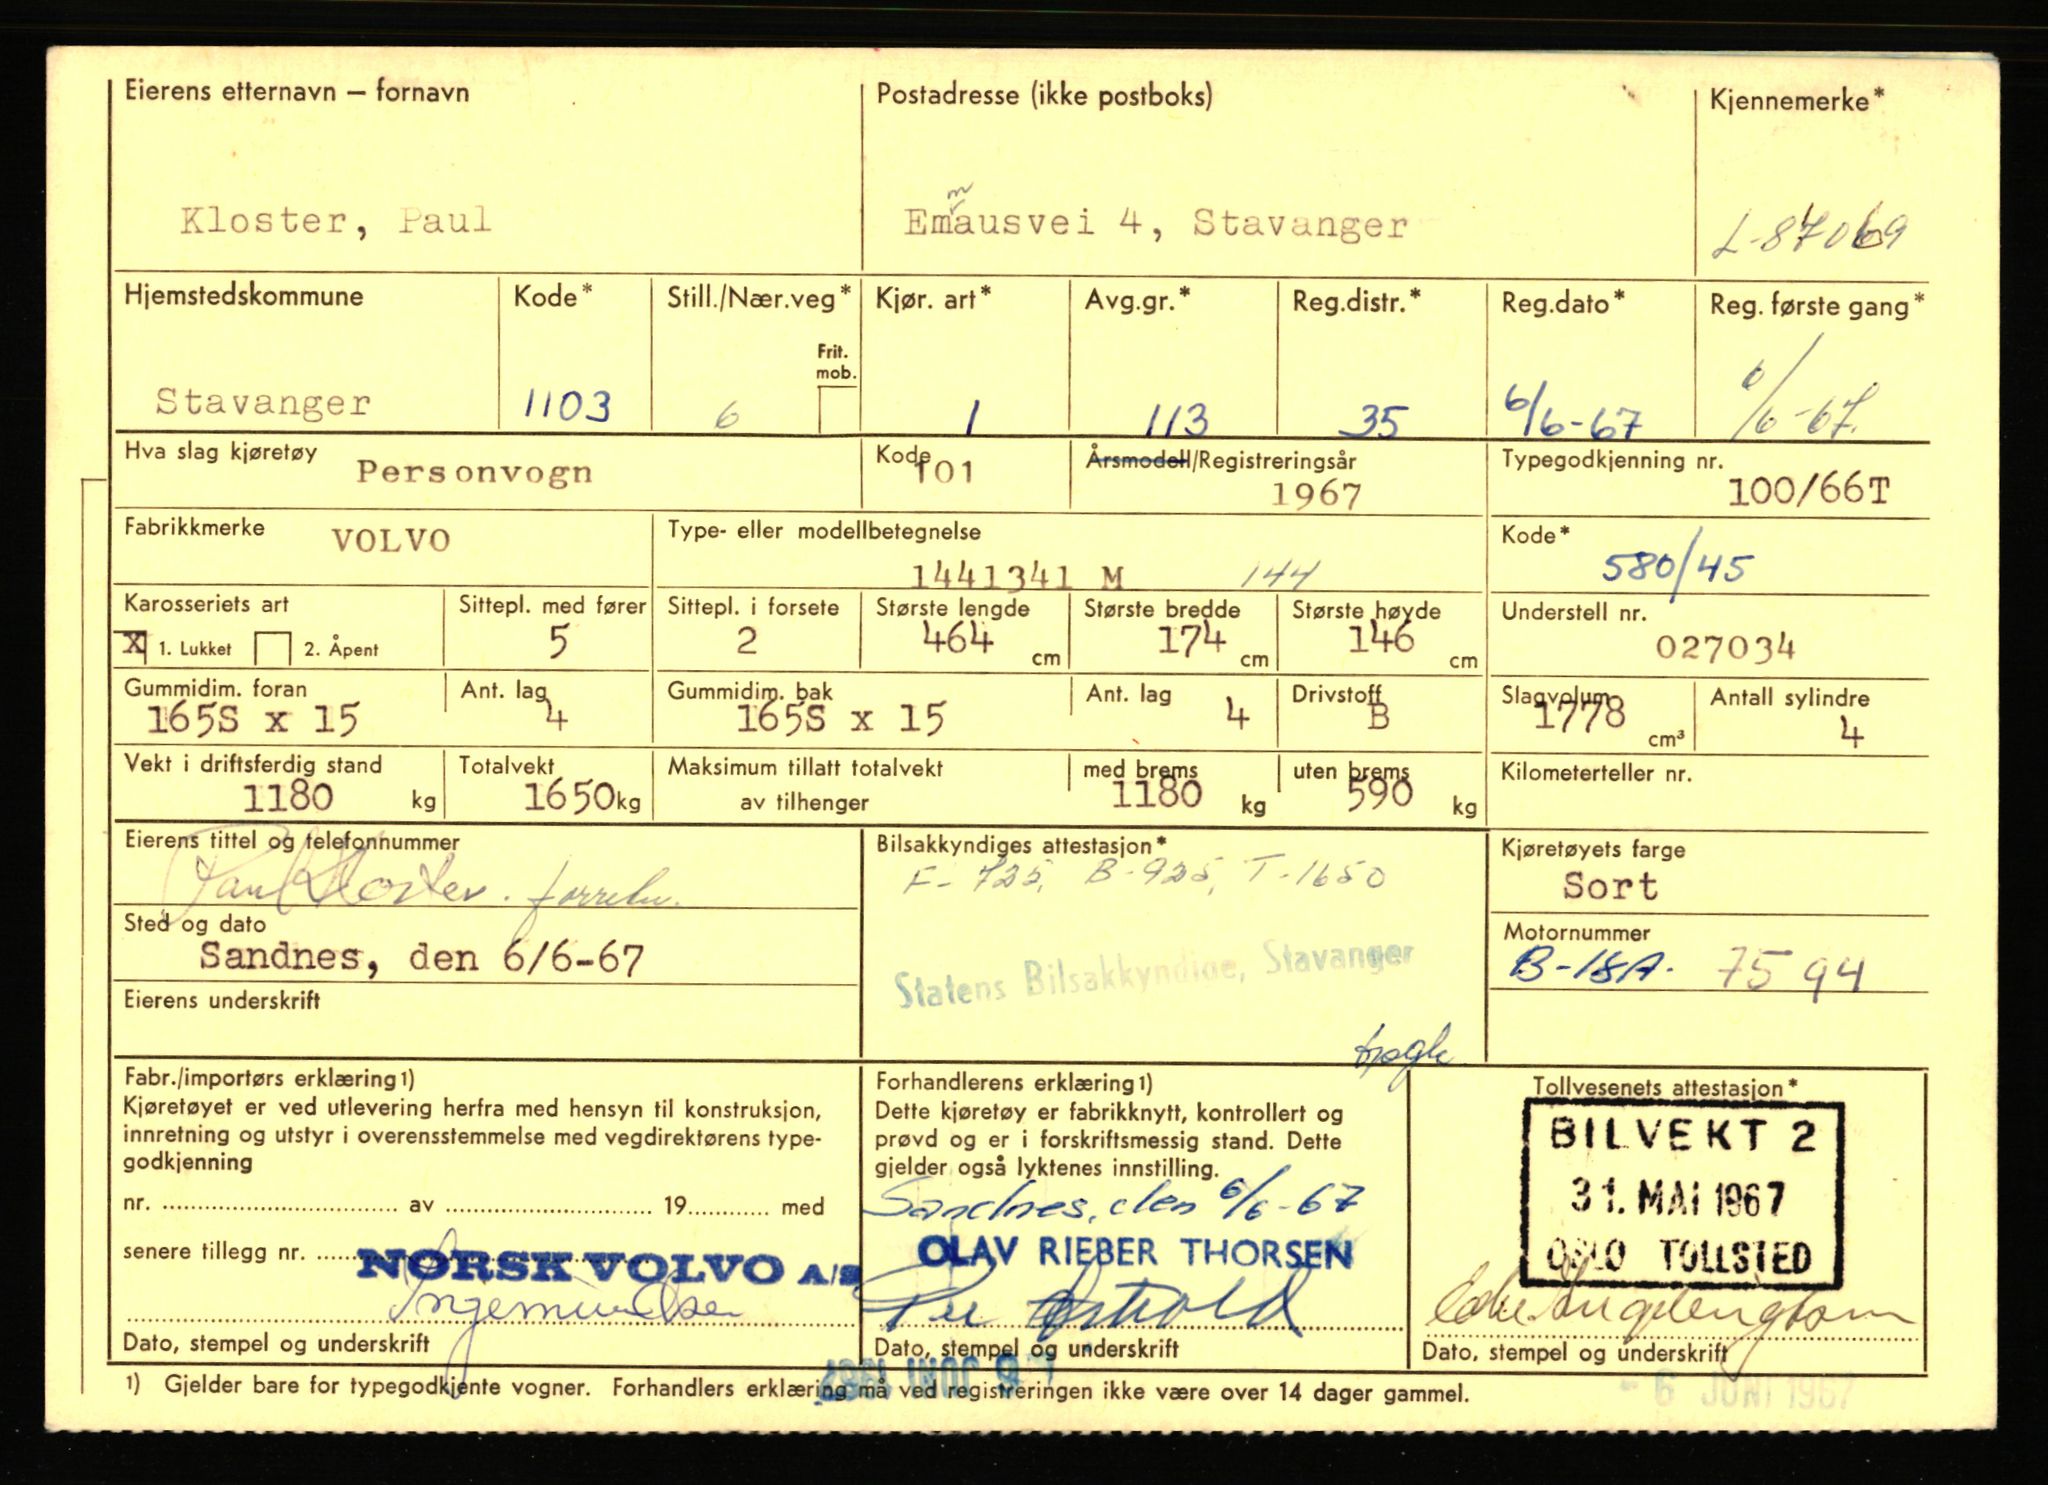 Eierens etternavn – fornavn
Postadresse (ikke postboks)
Kjennemerke*
Kloster, Paul
Emmausvei 4, Stavanger
L-87069
Hjemstedskommune
Kode*
Still./Nær.veg*
Frit. mob.
Kjør. art*
Avg.gr.*
Reg.distr.*
Reg.dato*
Reg. første gang*
Stavanger
1103
6
1
113
35
6/6-67
6/6-67.
Hva slag kjøretøy
Personvogn
Kode
101
Årsmodell/Registreringsår
1967
Typegodkjenning nr.
100/66T
Fabrikkmerke
VOLVO
Type- eller modellbetegnelse
1441341 M 144
Kode*
580/45
Karosseriets art
X 1. Lukket 2. Åpent
Sittepl. med fører
5
Sittepl. i forsete
2
Største lengde
464 cm
Største bredde
174 cm
Største høyde
146 cm
Understell nr.
027034
Gummidim. foran
165S x 15
Ant. lag
4
Gummidim. bak
165S x 15
Ant. lag
4
Drivstoff
B
Slagvolum
1778 cm³
Antall sylindre
4
Vekt i driftsferdig stand
1180 kg
Totalvekt
1650 kg
Maksimum tillatt totalvekt
av tilhenger
med brems
1180 kg
uten brems
590 kg
Kilometerteller nr.
Eierens tittel og telefonnummer
Paul Kloster.
Bilsakkyndiges attestasjon*
F-725, B-925, T-1650
Kjøretøyets farge
Sort
Sted og dato
Sandnes, den 6/6-67
Statens Bilsakkyndige, Stavanger
Motornummer
B-18A. 7594
Eierens underskrift
Fabr./importørs erklæring 1)
Kjøretøyet er ved utlevering herfra med hensyn til konstruksjon,
innretning og utstyr i overensstemmelse med vegdirektørens type-
godkjenning
nr. av 19 med
senere tillegg nr.
NORSK VOLVO A/S
Dato, stempel og underskrift
Forhandlerens erklæring 1)
Dette kjøretøy er fabrikknytt, kontrollert og
prøvd og er i forskriftsmessig stand. Dette
gjelder også lyktenes innstilling.
Sandnes, den 6/6-67
OLAV RIEBER THORSEN
Dato, stempel og underskrift
Tollvesenets attestasjon*
BILVEKT 2
31. MAI 1967
OSLO TOLLSTED
Dato, stempel og underskrift
1) Gjelder bare for typegodkjente vogner. Forhandlers erklæring må ved registreringen ikke være over 14 dager gammel.
- 6 JUNI 1967